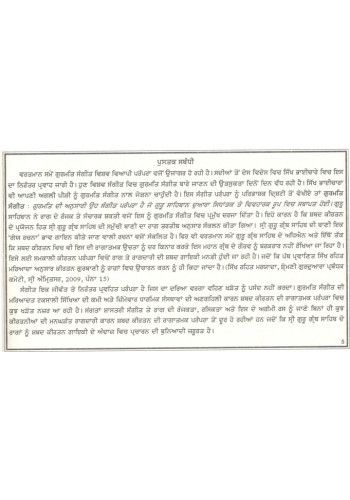 ਪੁਸਤਕ ਸਬੰਧੀ
ਵਰਤਮਾਨ ਸਮੇਂ ਗੁਰਮਤਿ ਸੰਗੀਤ ਵਿਸ਼ਵ ਵਿਆਪੀ ਪਰੰਪਰਾ ਵਜੋਂ ਉਜਾਗਰ ਹੋ ਰਹੀ ਹੈ। ਸਦੀਆਂ ਤੋਂ ਦੇਸ ਵਿਦੇਸ ਵਿਚ ਸਿੱਖ ਭਾਈਚਾਰੇ ਵਿਚ ਇਸ
ਦਾ ਨਿਰੰਤਰ ਪ੍ਰਵਾਹ ਜਾਰੀ ਹੈ। ਹੁਣ ਵਿਸ਼ਵ ਸੰਗੀਤ ਵਿਚ ਗੁਰਮਤਿ ਸੰਗੀਤ ਬਾਰੇ ਜਾਣਨ ਦੀ ਉਤਸੁਕਤਾ ਦਿਨੋਂ ਦਿਨ ਵੱਧ ਰਹੀ ਹੈ। ਸਿੱਖ ਭਾਈਚਾਰਾ
ਵੀ ਆਪਣੀ ਅਗਲੀ ਪੀੜੀ ਨੂੰ ਗੁਰਮਤਿ ਸੰਗੀਤ ਨਾਲ ਜੋੜਨਾ ਚਾਹੁੰਦੀ ਹੈ। ਇਸ ਸੰਗੀਤ ਪਰੰਪਰਾ ਨੂੰ ਪਰਿਭਾਸ਼ਕ ਦ੍ਰਿਸ਼ਟੀ ਤੋਂ ਵੇਖੀਏ ਤਾਂ ਗੁਰਮਤਿ
ਸੰਗੀਤ : ਗੁਰਮਤਿ ਦੀ ਅਨੁਸਾਰੀ ਉਹ ਸੰਗੀਤ ਪਰੰਪਰਾ ਹੈ ਜੋ ਗੁਰੂ ਸਾਹਿਬਾਨ ਦੁਆਰਾ ਸਿਧਾਂਤਕ ਤੇ ਵਿਵਹਾਰਕ ਰੂਪ ਵਿਚ ਸਥਾਪਤ ਹੋਈ। ਗੁਰੂ
ਸਾਹਿਬਾਨ ਨੇ ਰਾਗ ਦੇ ਰੰਜਕ ਤੇ ਸੰਚਾਰਕ ਸ਼ਕਤੀ ਵਜੋਂ ਇਸ ਨੂੰ ਗੁਰਮਤਿ ਸੰਗੀਤ ਵਿਚ ਪ੍ਰਮੁੱਖ ਦਰਜਾ ਦਿੱਤਾ ਹੈ। ਇਹੋ ਕਾਰਨ ਹੈ ਕਿ ਸ਼ਬਦ ਕੀਰਤਨ
ਦੇ ਪ੍ਰਯੋਜਨ ਹਿਤ ਸ੍ਰੀ ਗੁਰੂ ਗ੍ਰੰਥ ਸਾਹਿਬ ਦੀ ਸਮੁੱਚੀ ਬਾਣੀ ਦਾ ਰਾਗ ਤਰਤੀਬ ਅਨੁਸਾਰ ਸੰਕਲਨ ਕੀਤਾ ਗਿਆ। ਸ੍ਰੀ ਗੁਰੂ ਗ੍ਰੰਥ ਸਾਹਿਬ ਦੀ ਬਾਣੀ ਇਕ
'ਗੇਯ ਰਚਨਾ' ਭਾਵ ਗਾਇਨ ਕੀਤੇ ਜਾਣ ਵਾਲੀ ਰਚਨਾ ਵਜੋਂ ਸੰਕਲਿਤ ਹੈ। ਫਿਰ ਵੀ ਵਰਤਮਾਨ ਸਮੇਂ ਗੁਰੂ ਗ੍ਰੰਥ ਸਾਹਿਬ ਦੇ ਅਧਿਐਨ ਅਤੇ ਇੱਥੋਂ ਤੱਕ
ਕਿ ਸ਼ਬਦ ਕੀਰਤਨ ਵਿਚ ਵੀ ਇਸ ਦੀ ਰਾਗਾਤਮਕ ਉਚਤਾ ਨੂੰ ਦਰ ਕਿਨਾਰ ਕਰਕੇ ਇਸ ਮਹਾਨ ਗ੍ਰੰਥ ਦੇ ਗੌਰਵ ਨੂੰ ਬਰਕਰਾਰ ਨਹੀਂ ਰੱਖਿਆ ਜਾ ਰਿਹਾ ਹੈ।
ਇਸੇ ਲਈ ਸਮਕਾਲੀ ਕੀਰਤਨ ਪਰੰਪਰਾ ਵਿਚ ਰਾਗ ਵਿਹੂਣੇ ਤੇ ਰਾਗਦਾਰੀ ਦੀ ਸ਼ਬਦ ਗਾਇਕੀ ਮਨਫੀ ਹੁੰਦੀ ਜਾ ਰਹੀ ਹੈ। ਜਦੋਂ ਕਿ ਪੰਥ ਪ੍ਰਵਾਣਿਤ ਸਿੱਖ ਰਹਿਤ
ਮਰਿਆਦਾ ਅਨੁਸਾਰ ਕੀਰਤਨ ਗੁਰਬਾਣੀ ਨੂੰ ਰਾਗਾਂ ਵਿਚ ਉਚਾਰਨ ਕਰਨ ਨੂੰ ਹੀ ਕਿਹਾ ਜਾਂਦਾ ਹੈ। (ਸਿੱਖ ਰਹਿਤ ਮਰਯਾਦਾ, ਸ਼੍ਰੋਮਣੀ ਗੁਰਦੁਆਰਾ ਪ੍ਰਬੰਧਕ
ਕਮੇਟੀ, ਸ੍ਰੀ ਅੰਮ੍ਰਿਤਸਰ, 2009, ਪੰਨਾ 15)
ਸੰਗੀਤ ਇਕ ਜੀਵੰਤ ਤੇ ਨਿਰੰਤਰ ਪ੍ਰਵਹਿਤ ਪਰੰਪਰਾ ਹੈ ਜਿਸ ਦਾ ਦਰਿਆ ਵਰਗਾ ਵਹਿਣ ਖੜੋਤ ਨੂੰ ਪਸੰਦ ਨਹੀਂ ਕਰਦਾ। ਗੁਰਮਤਿ ਸੰਗੀਤ ਦੀ
ਮਰਿਆਦਤ ਟਕਸਾਲੀ ਸਿੱਖਿਆ ਦੀ ਕਮੀ ਅਤੇ ਜ਼ਿੰਮੇਵਾਰ ਧਾਰਮਿਕ ਸੰਸਥਾਵਾਂ ਦੀ ਅਣਗਹਿਲੀ ਕਾਰਨ ਸ਼ਬਦ ਕੀਰਤਨ ਦੀ ਰਾਗਾਤਮਕ ਪਰੰਪਰਾ ਵਿਚ
ਕੁਝ ਖੜੋਤ ਨਜ਼ਰ ਆ ਰਹੀ ਹੈ। ਸੰਗਤਾਂ ਸ਼ਾਸਤਰੀ ਸੰਗੀਤ ਤੇ ਰਾਗ ਦੀ ਰੰਜਕਤਾ, ਰਸਿਕਤਾ ਅਤੇ ਇਸ ਦੇ ਅਗੰਮੀ ਰਸ ਨੂੰ ਜਾਣੇ ਬਿਨਾਂ ਹੀ ਕੁਝ
ਕੀਰਤਨੀਆਂ ਦੀ ਮਨਘੜਤ ਰਾਗਦਾਰੀ ਕਾਰਨ ਸ਼ਬਦ ਕੀਰਤਨ ਦੀ ਰਾਗਾਤਮਕ ਪਰੰਪਰਾ ਤੋਂ ਦੂਰ ਹੋ ਰਹੀਆਂ ਹਨ ਜਦੋਂ ਕਿ ਸ੍ਰੀ ਗੁਰੂ ਗ੍ਰੰਥ ਸਾਹਿਬ ਦੇ
ਰਾਗਾਂ ਨੂੰ ਸ਼ਬਦ ਕੀਰਤਨ ਗਾਇਕੀ ਦੇ ਅੰਦਾਜ਼ ਵਿਚ ਪ੍ਰਚਾਰਨ ਦੀ ਬੁਨਿਆਦੀ ਜ਼ਰੂਰਤ ਹੈ।